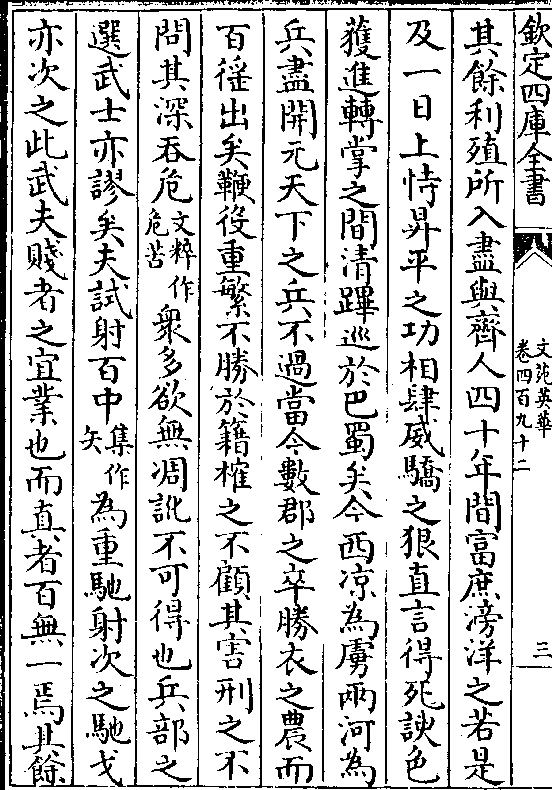 欽定四庫全書
文苑英華
卷四百九十二
三
其餘利殖所入盡與齊人四十年間富庶滂洋之若是
及一日上恃昇平之功相肆威驕之狠直言得死諛色
獲進轉掌之間清蹕巡於巴蜀矣今西凉為虜兩河為
兵盡開元天下之兵不過當今數郡之卒勝衣之農而
百徭出矣鞭役重繁不勝於籍榷之不顧其害刑之不
問其深吞危文粹作危苦衆多欲無凋訛不可得也兵部之
選武士亦謬矣夫試射百中集作矢為重馳射次之馳戈
亦次之此武夫賤者之宜業也而真者百無一焉其餘